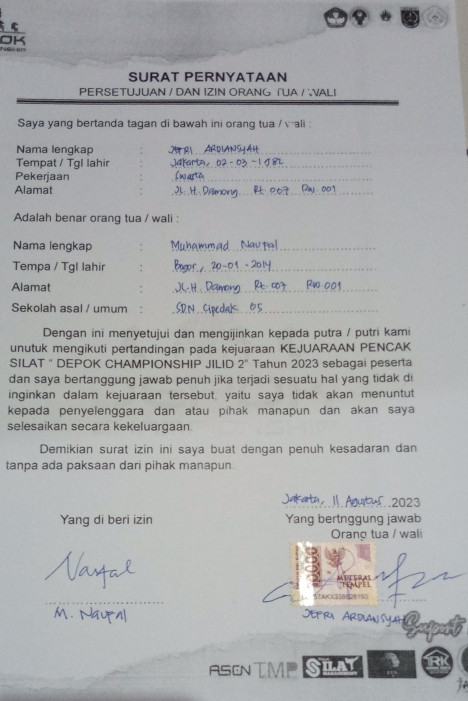 SURAT PERNYATAAN
PERSETUJUAN / DAN IZIN ORANG TUA / WALI
Saya yang bertanda tagan di bawah ini orang tua / wali :
Nama lengkap : JEFRI ARDIANSYAH
Tempat / Tgl lahir : Jakarta, 02-03-1982
Pekerjaan : Swasta
Alamat : JL. H. Damong Rt. 007 Rw. 001
Adalah benar orang tua / wali :
Nama lengkap : Muhammad Naufal
Tempa / Tgl lahir : Bogor, 20-01-2014
Alamat : JL. H. Damong Rt. 007 Rw. 001
Sekolah asal / umum : SDN Cipedak 05
Dengan ini menyetujui dan mengijinkan kepada putra / putri kami
unutuk mengikuti pertandingan pada kejuaraan KEJUARAAN PENCAK
SILAT " DEPOK CHAMPIONSHIP JILID 2" Tahun 2023 sebagai peserta
dan saya bertanggung jawab penuh jika terjadi sesuatu hal yang tidak di
inginkan dalam kejuaraan tersebut, yaitu saya tidak akan menuntut
kepada penyelenggara dan atau pihak manapun dan akan saya
selesaikan secara kekeluargaan.
Demikian surat izin ini saya buat dengan penuh kesadaran dan
tanpa ada paksaan dari pihak manapun.
Jakarta, 11 Agustus 2023
Yang di beri izin
Yang bertnggung jawab
Orang tua / wali
Naufal
METERAI
TEMPEL
M. Naufal
JEFRI ARDIANSYAH
Suport
ASCN TMP SILAT RK